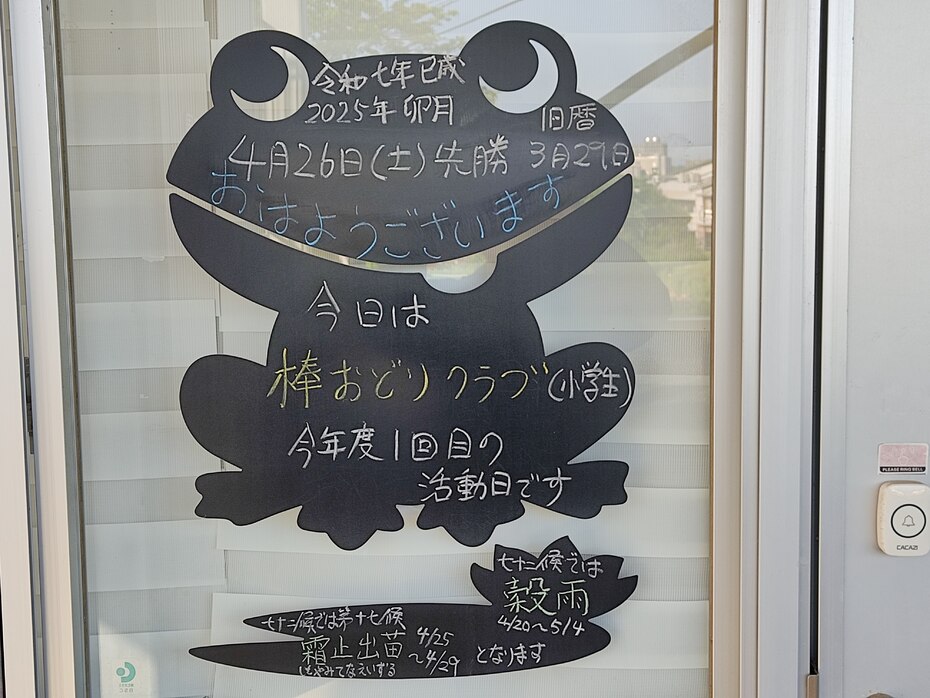 令和七年巳歳
2025年卯月
旧暦
4月26日(土)先勝 3月29日
おはようございます
今日は
棒おどりクラブ(小学生)
今年度1回目の
活動日です
七十二候では
穀雨
4/20~5/4
七十二候では第十七候
霜止出苗
しもやみてなえいずる
4/25
~4/29
となります
PLEASE RING BELL
CACAZI